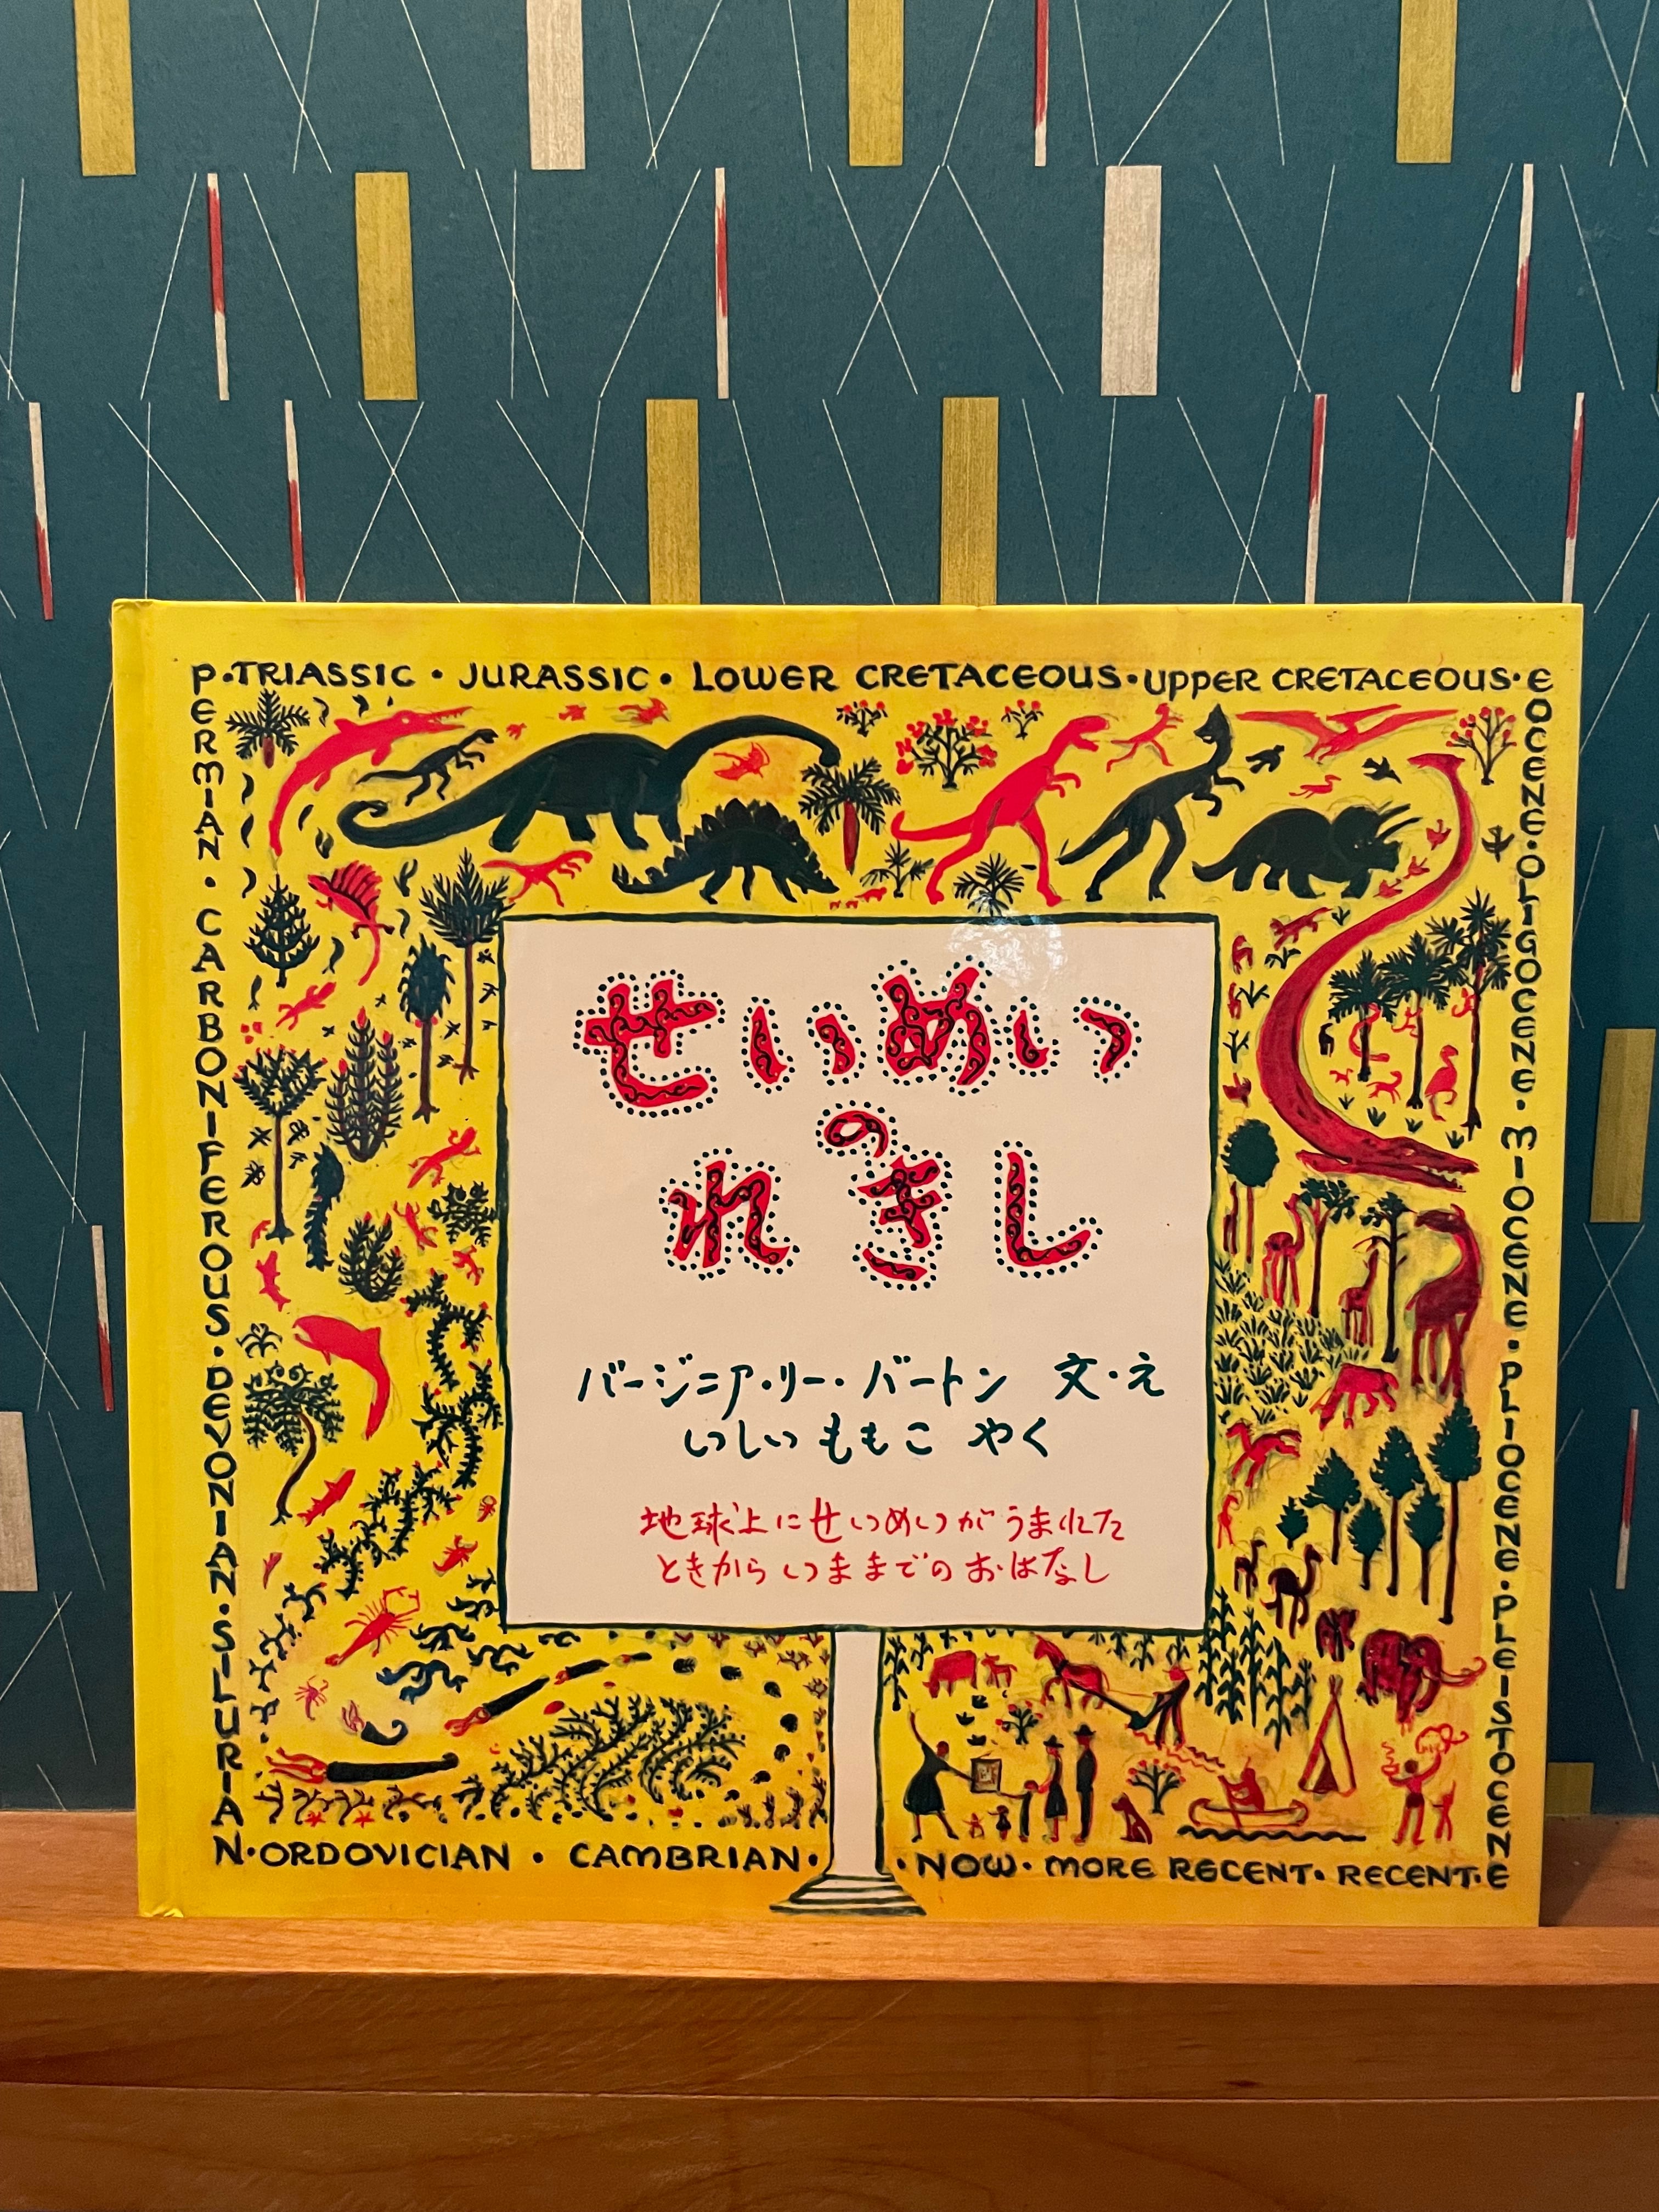 P・TRIASSIC・JURASSIC・LOWER CRETACEOUS・UPPER CRETACEOUS・E
PERMIAN・CARBONIFEROUS・DEVONIAN・SILURIAN
EOCENE・OLIGOCENE・MIOCENE・PLIOCENE・PLEISTOCENE
せいめい
の
れきし
バージニア・リー・バートン 文・え
いしい ももこ やく
地球上にせいめいがうまれた
ときからいままでのおはなし
N・ORDOVICIAN・CAMBRIAN・
・NOW・MORE RECENT・RECENT・E